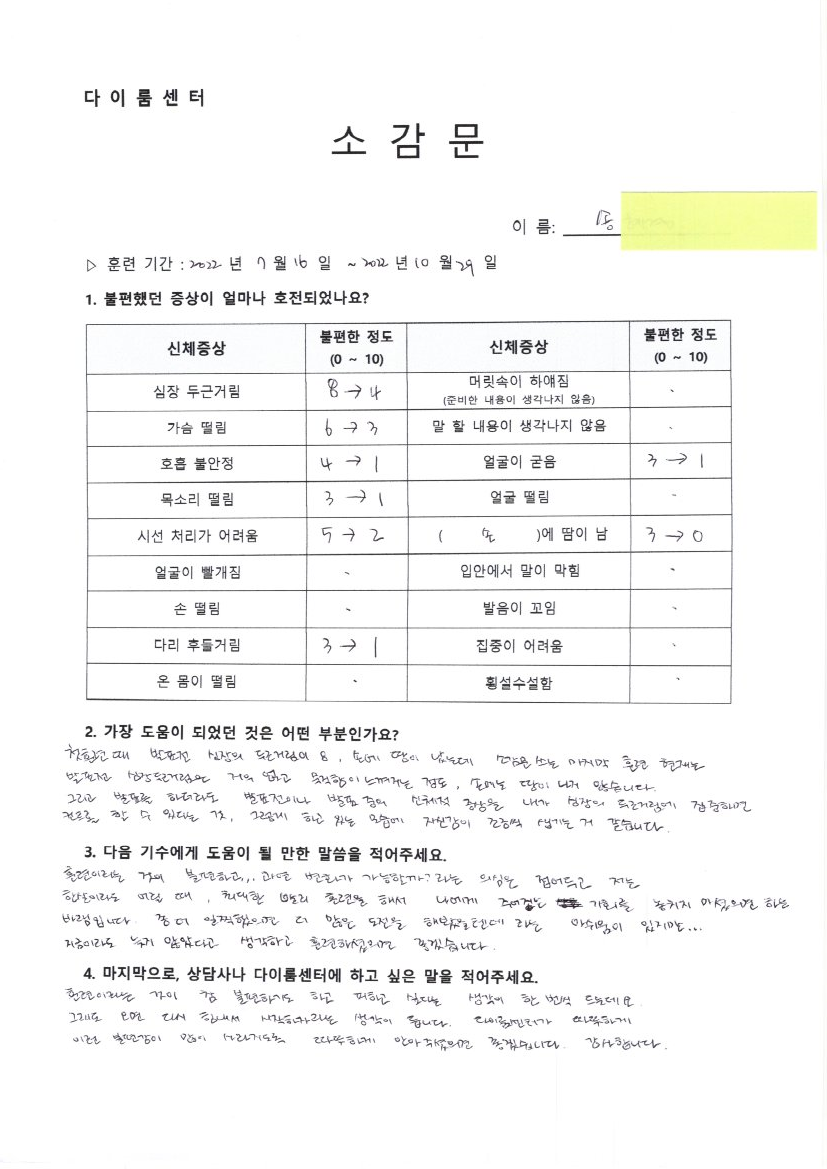 다이룸센터
소감문
이 름:
▷ 훈련 기간 : 2022 년 7 월 16 일 ~ 2022 년 10 월 29 일
1. 불편했던 증상이 얼마나 호전되었나요?
신체증상 불편한 정도 (0 ~ 10) 신체증상 불편한 정도 (0 ~ 10)
심장 두근거림 8 → 4 머릿속이 하얘짐 (준비한 내용이 생각나지 않음) -
가슴 떨림 6 → 3 말 할 내용이 생각나지 않음 -
호흡 불안정 4 → 1 얼굴이 굳음 3 → 1
목소리 떨림 3 → 1 얼굴 떨림 -
시선 처리가 어려움 5 → 2 ( 손 )에 땀이 남 3 → 0
얼굴이 빨개짐 - 입안에서 말이 막힘 -
손 떨림 - 발음이 꼬임 -
다리 후들거림 3 → 1 집중이 어려움 -
온 몸이 떨림 - 횡설수설함 -
2. 가장 도움이 되었던 것은 어떤 부분인가요?
첫훈련 때 발표전 심장의 두근거림이 8, 손에 땀이 났는데 쓰는 마지막 훈련 현재는
발표전 심장두근거림은 거의 없고 묵직함이 느껴지는 정도, 손에는 땀이 나지 않습니다.
그리고 발표를 하더라도 발표전이나 발표 중의 신체적 증상을 내가 심장의 두근거림에 집중하면
컨트롤 할 수 있다는 것, 그렇게 하고 있는 모습에 자신감이 조금씩 생기는 거 같습니다.
3. 다음 기수에게 도움이 될 만한 말씀을 적어주세요.
훈련이라는 것이 불편하고,,, 과연 변화가 가능한가?라는 의심은 접어두고 저는
한살이라도 어릴 때, 최대한 빨리 훈련을 해서 나에게 주어지는 기회를 놓치지 마셨으면 하는
바램입니다. 좀 더 일찍했으면 더 많은 도전을 해봤을텐데 라는 아쉬움이 있지만...
지금이라도 늦지 않았다고 생각하고 훈련하셨으면 좋겠습니다.
4. 마지막으로, 상담사나 다이룸센터에 하고 싶은 말을 적어주세요.
훈련이라는 것이 참 불편하기도 하고 피하고 싶다는 생각이 한번씩 드는데요.
그래도 오면 다시 힘내서 시작하자라는 생각이 듭니다. 다이룸센터가 따뜻하게
이런 불편감이 많이 사라지도록 따뜻하게 안아주셨으면 좋겠습니다. 감사합니다.